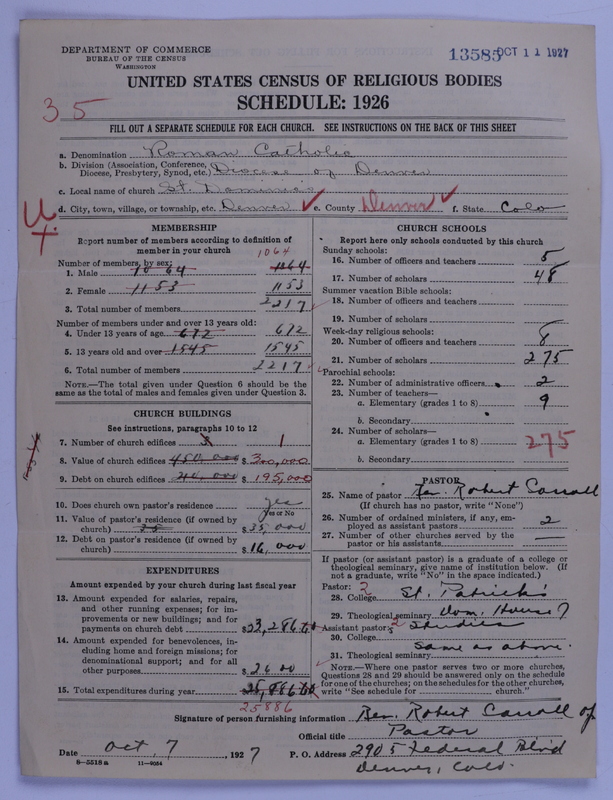 DEPARTMENT OF COMMERCE
BUREAU OF THE CENSUS
WASHINGTON
13585 OCT 11 1927
UNITED STATES CENSUS OF RELIGIOUS BODIES
SCHEDULE: 1926
35
FILL OUT A SEPARATE SCHEDULE FOR EACH CHURCH. SEE INSTRUCTIONS ON THE BACK OF THIS SHEET
a. Denomination Roman Catholic
b. Division (Association, Conference, Diocese, Presbytery, Synod, etc.) Diocese of Denver
c. Local name of church St. Dominic's
d. City, town, village, or township, etc. Denver e. County Denver f. State Colo
MEMBERSHIP
Report number of members according to definition of member in your church
Number of members by sex: 1064
1. Male 1064 1364
2. Female 1153 1153
3. Total number of members 2217
Number of members under and over 13 years old:
4. Under 13 years of age 672 672
5. 13 years old and over 1545 1545
6. Total number of members 2217
NOTE.—The total given under Question 6 should be the same as the total of males and females given under Question 3.
CHURCH BUILDINGS
See instructions, paragraphs 10 to 12
7. Number of church edifices 3 1
8. Value of church edifices 450,000 $ 300,000
9. Debt on church edifices $ 195,000
10. Does church own pastor's residence yes
Yes or No
11. Value of pastor's residence (if owned by church) 35 $ 35,000
12. Debt on pastor's residence (if owned by church) $ 16,000
EXPENDITURES
Amount expended by your church during last fiscal year
13. Amount expended for salaries, repairs, and other running expenses; for improvements or new buildings; and for payments on church debt $ 23,286.60
14. Amount expended for benevolences, including home and foreign missions; for denominational support; and for all other purposes $ 2600
15. Total expenditures during year $ 25,886.60
25886
CHURCH SCHOOLS
Report here only schools conducted by this church
Sunday schools:
16. Number of officers and teachers 5
17. Number of scholars 48
Summer vacation Bible schools:
18. Number of officers and teachers
19. Number of scholars
Week-day religious schools:
20. Number of officers and teachers 8
21. Number of scholars 275
Parochial schools:
22. Number of administrative officers 2
23. Number of teachers—
a. Elementary (grades 1 to 8) 9
b. Secondary
24. Number of scholars—
a. Elementary (grades 1 to 8) 275
b. Secondary
PASTOR
25. Name of pastor Rev. Robert Carroll
(If church has no pastor, write "None")
26. Number of ordained ministers, if any, employed as assistant pastors 2
27. Number of other churches served by the pastor or his assistants —
If pastor (or assistant pastor) is a graduate of a college or theological seminary, give name of institution below. (If not a graduate, write "No" in the space indicated.)
Pastor: 2
28. College St. Patrick's
29. Theological seminary Dom. House of
Assistant pastor: 2 Studies
30. College Same as above.
31. Theological seminary
NOTE.—Where one pastor serves two or more churches, Questions 28 and 29 should be answered only on the schedule for one of the churches; on the schedules for the other churches, write "See schedule for church."
Signature of person furnishing information Rev. Robert Carroll op
Official title Pastor
Date Oct 7, 1927 P. O. Address 2905 Federal Blvd
Denver, Colo.
8—5518a 11—9034